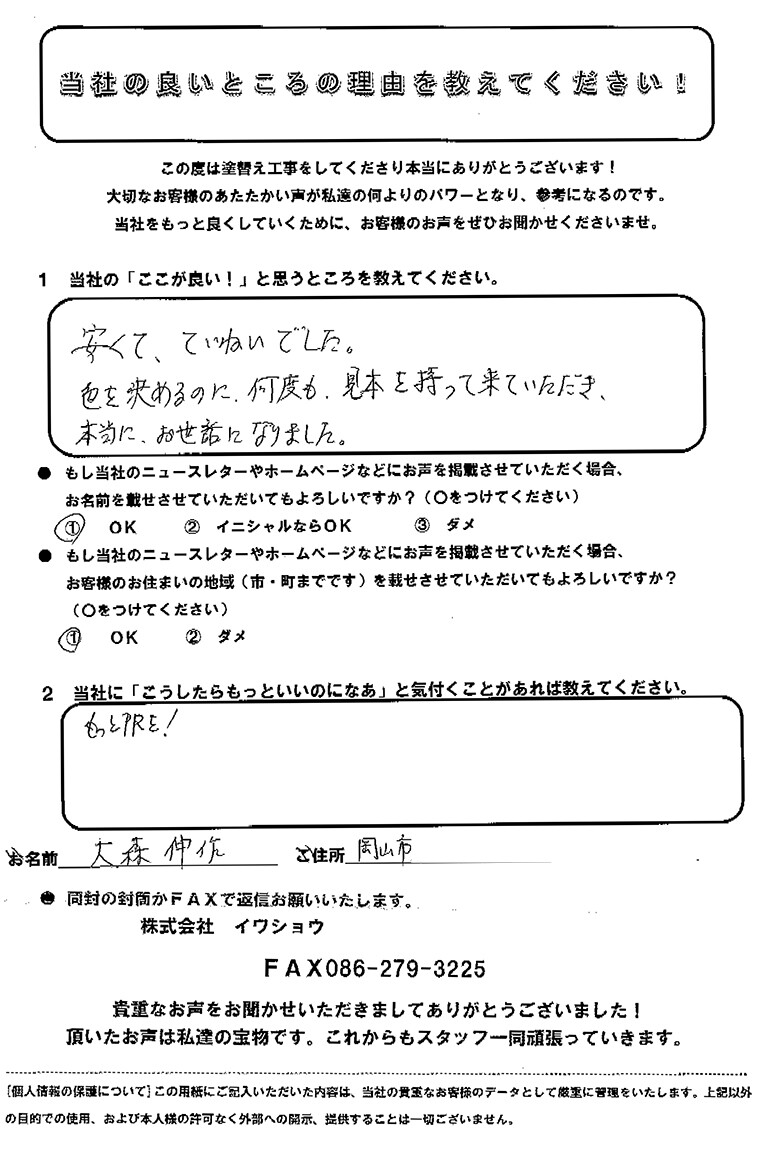 当社の良いところの理由を教えてください！
この度は塗替え工事をしてくださり本当にありがとうございます！
大切なお客様のあたたかい声が私達の何よりのパワーとなり、参考になるのです。
当社をもっと良くしていくために、お客様のお声をぜひお聞かせくださいませ。
1 当社の「ここが良い！」と思うところを教えてください。
安くて、ていねいでした。
色を決めるのに、何度も、見本を持って来ていただき、
本当に、お世話になりました。
● もし当社のニュースレターやホームページなどにお声を掲載させていただく場合、
お名前を載せさせていただいてもよろしいですか？（〇をつけてください）
① OK ② イニシャルならOK ③ ダメ
● もし当社のニュースレターやホームページなどにお声を掲載させていただく場合、
お客様のお住まいの地域（市・町までです）を載せさせていただいてもよろしいですか？
（〇をつけてください）
① OK ② ダメ
2 当社に「こうしたらもっといいのになあ」と気付くことがあれば教えてください。
もっとPRを！
お名前 大森伸作 ご住所 岡山市
● 同封の封筒かFAXで返信お願いいたします。
株式会社 イワショウ
FAX086-279-3225
貴重なお声をお聞かせいただきましてありがとうございました！
頂いたお声は私達の宝物です。これからもスタッフ一同頑張っていきます。
[個人情報の保護について]この用紙にご記入いただいた内容は、当社の貴重なお客様のデータとして厳重に管理をいたします。上記以外
の目的での使用、および本人様の許可なく外部への開示、提供することは一切ございません。